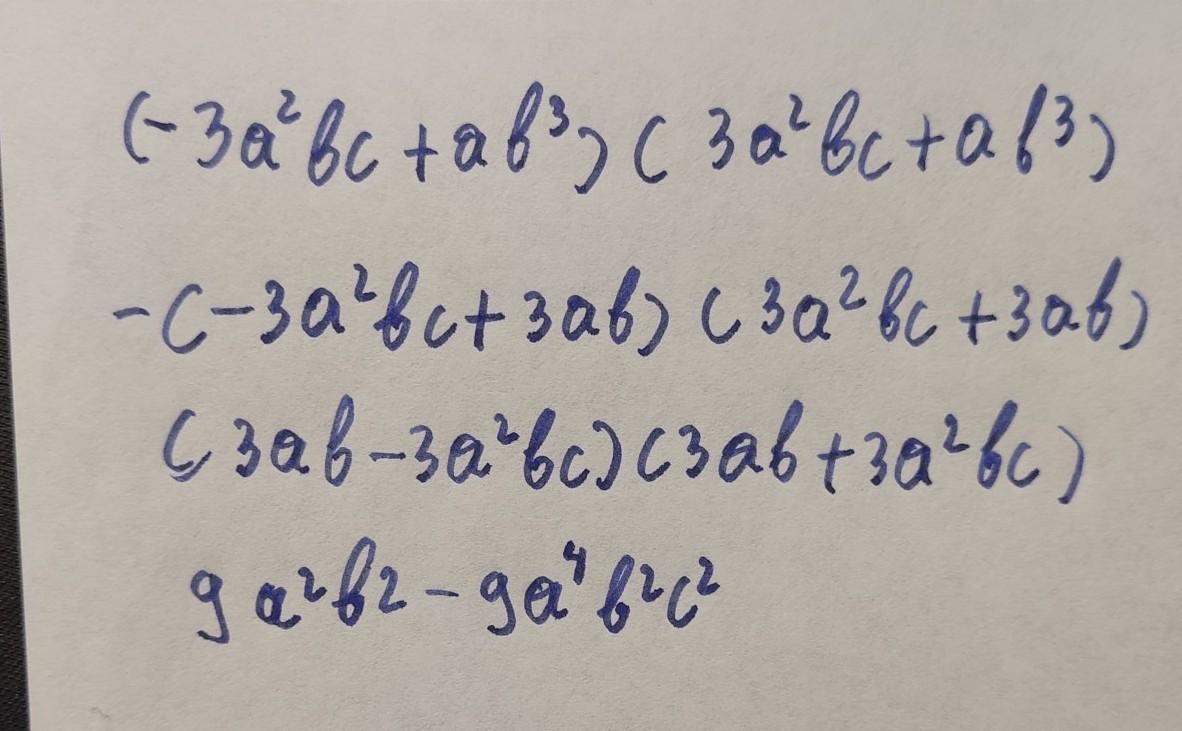 (-3a²bc + ab³)(3a²bc + ab³)
-(-3a²bc + 3ab)(3a²bc + 3ab)
(3ab - 3a²bc)(3ab + 3a²bc)
9a²b2 - 9a⁴b²c²